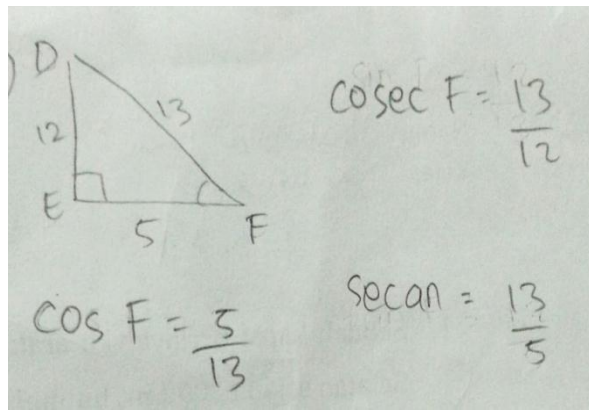 )
D
12
13
E
5
F
cosec F = 13
12
cos F = 5
13
secan = 13
5